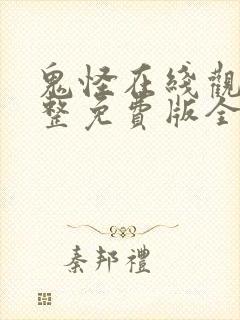 鬼怪在綫觀
整免費版全
秦邦禮